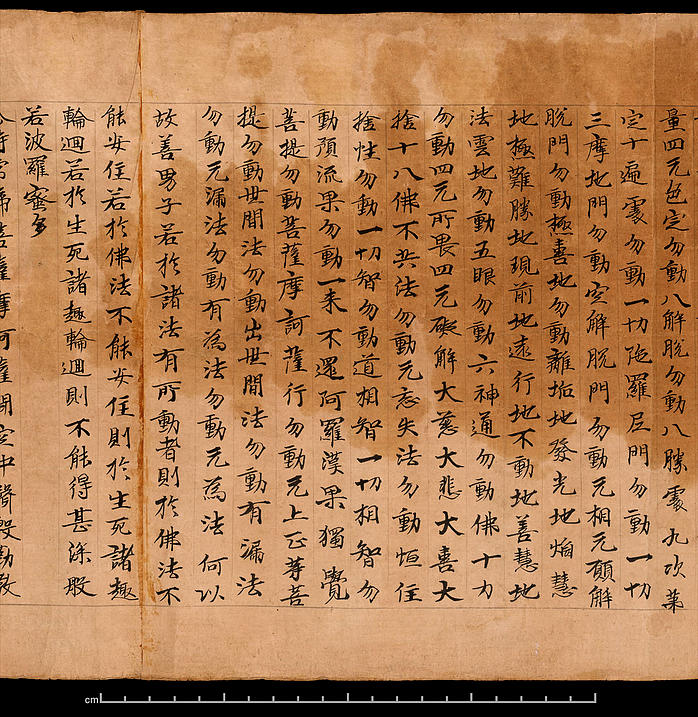 量四无色定勿動八解脫勿動八勝處九次第
定十遍處勿動一切陀羅尼門勿動一切
三摩地門勿動空解脫門勿動无相无願解
脫門勿動極喜地勿動離垢地發光地焰慧
地極難勝地現前地遠行地不動地善慧地
法雲地勿動五眼勿動六神通勿動佛十力
勿動四无所畏四无礙解大慈大悲大喜大
捨十八佛不共法勿動无忘失法勿動恒住
捨性勿動一切智勿動道相智一切相智勿
動預流果勿動一来不還阿羅漢果獨覺
菩提勿動菩薩摩訶薩行勿動无上正等菩
提勿動世間法勿動出世間法勿動有漏法
勿動无漏法勿動有為法勿動无為法何以
故善男子若於諸法有所動者則於佛法不
能安住若於佛法不能安住則於生死諸趣
輪迴若於生死諸趣輪迴則不能得甚深般
若波羅蜜多
時常啼菩薩摩訶薩聞空中聲殷勤教
cm